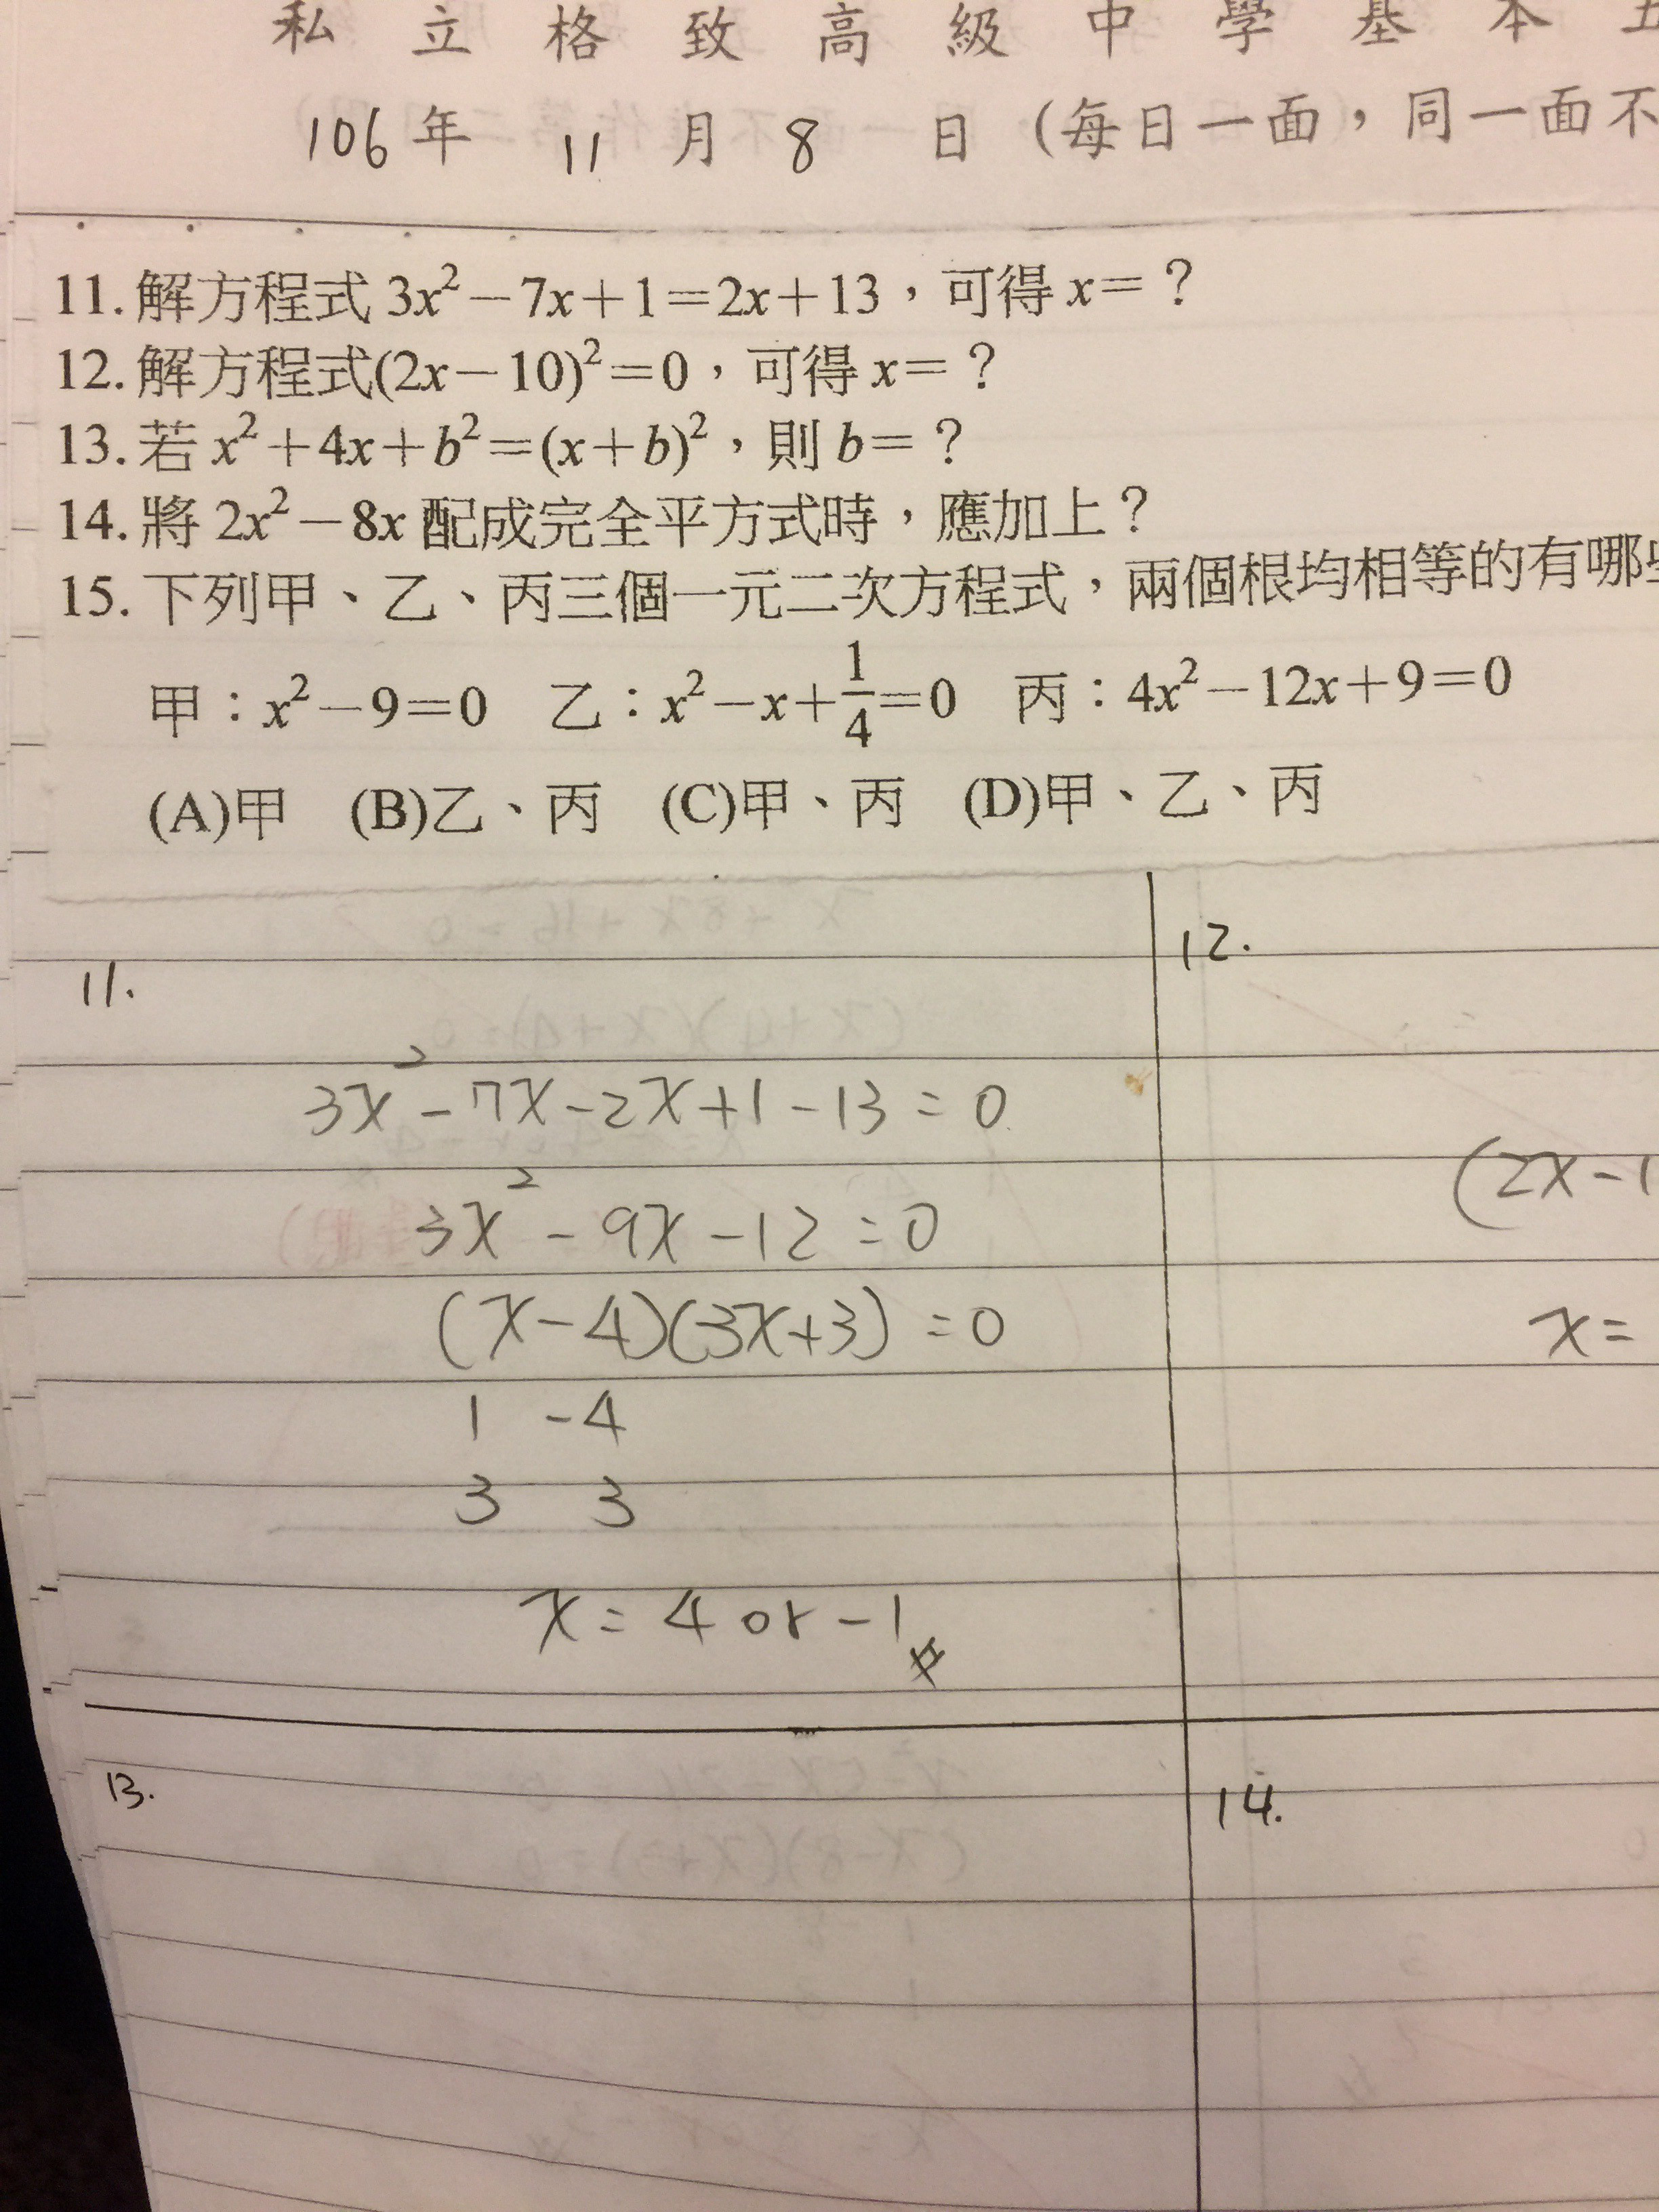 私立格致高級中學基本
106年 11月 8日(每日一面,同一面不
11. 解方程式 3x²-7x+1=2x+13,可得 x=?
12. 解方程式(2x-10)²=0,可得 x=?
13. 若 x²+4x+b²=(x+b)²,則 b=?
14. 將 2x²-8x 配成完全平方式時,應加上?
15. 下列甲、乙、丙三個一元二次方程式,兩個根均相等的有哪
甲:x²-9=0 乙:x²-x+1/4=0 丙:4x²-12x+9=0
(A)甲 (B)乙、丙 (C)甲、丙 (D)甲、乙、丙
11.
3x²-7x-2x+1-13=0
3x²-9x-12=0
(x-4)(3x+3)=0
1 -4
3 3
x=4 or -1
12.
(2x-1
x=
13.
14.